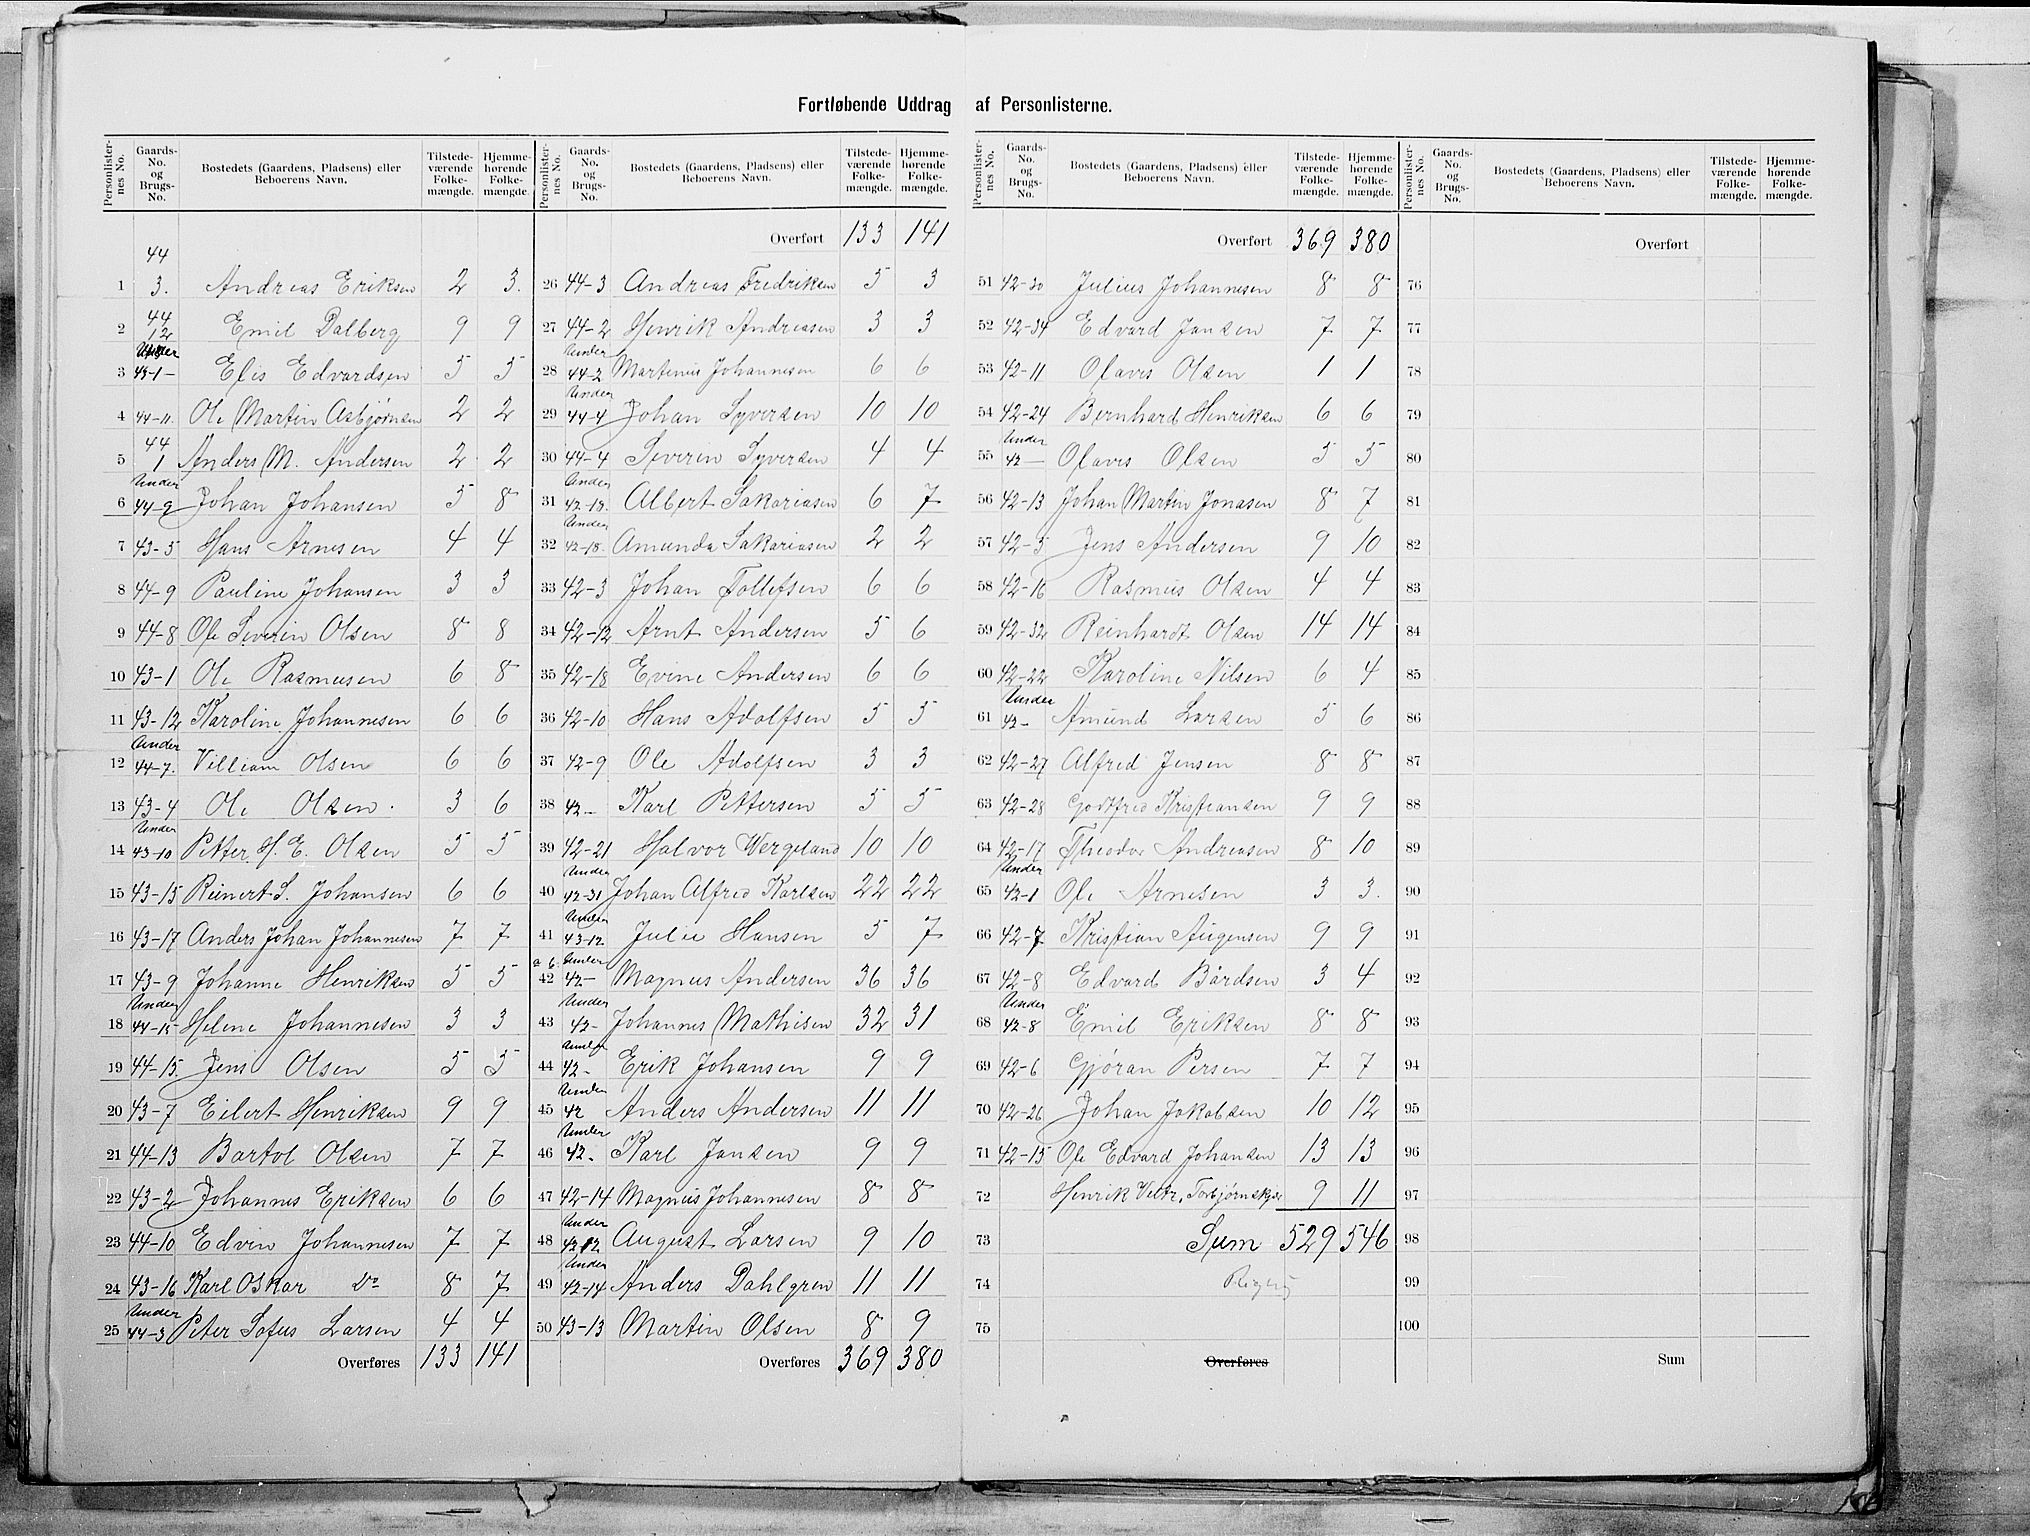 Fortløbende Uddrag af Personlisterne.
Personlister-nes No. Gaards-No. og Brugs-No. Bostedets (Gaardens, Pladsens) eller Beboerens Navn. Tilstede-værende Folke-mængde. Hjemme-hørende Folke-mængde.
1 44 3. Andreas Eriksen 2 3.
2 44 12 Emil Dalberg 9 9
3 Under 43-1- Elis Edvardsen 5 5
4 44-11. Ole Martin Asbjørnsen 2 2
5 44 1 Anders M. Andersen 2 2
6 Under 44-9 Johan Johansen 5 8
7 43-5 Hans Arnesen 4 4
8 44-9 Pauline Johansen 3 3
9 44-8 Ole Severin Olsen 8 8
10 43-1 Ole Rasmusen 6 8
11 43-12 Karoline Johannesen 6 6
12 Under 44-7. Villiam Olsen 6 6
13 43-4 Ole Olsen. 3 6
14 Under 43-10 Petter H. E. Olsen 5 5
15 43-15 Reinert S. Johansen 6 6
16 43-17 Anders Johan Johannesen 7 7
17 43-9 Johanne Henriksen 5 5
18 Under 44-15 Helene Johannesen 3 3
19 44-15. Jens Olsen 5 5
20 43-7 Eilert Henriksen 9 9
21 44-13 Bartol Olsen 7 7
22 43-2 Johannes Eriksen 6 6
23 44-10 Edvin Johannesen 7 7
24 43-16 Karl Oskar Do 8 7
25 Under 44-3 Peter Sofus Larsen 4 4
Overføres 133 141
Personlister-nes No. Gaards-No. og Brugs-No. Bostedets (Gaardens, Pladsens) eller Beboerens Navn. Tilstede-værende Folke-mængde. Hjemme-hørende Folke-mængde.
Overført 133 141
26 44-3 Andreas Fredriksen 5 3
27 44-2 Henrik Andreasen 3 3
28 Under 44-2 Martinus Johannesen 6 6
29 Under 44-4 Johan Syversen 10 10
30 44-4 Severin Syversen 4 4
31 Under 42-18. Albert Sakariasen 6 7
32 Under 42-18. Amunda Sakariasen 2 2
33 42-3 Johan Tollefsen 6 6
34 42-12 Arnt Andersen 5 6
35 42-18 Evine Andersen 6 6
36 42-10 Hans Adolfsen 5 5
37 42-9 Ole Adolfsen 3 3
38 42- Karl Pettersen 5 5
39 42-21 Halvor Wergeland 10 10
40 Under 42-31 Johan Alfred Karlsen 22 22
41 Under 43-12 Julie Hansen 5 7
42 a 6. Under 42- Magnus Andersen 36 36
43 Under 42- Johannes Mathisen 32 31
44 Under 42- Erik Johansen 9 9
45 Under 42 Anders Andersen 11 11
46 Under 42- Karl Jansen 9 9
47 42-14 Magnus Johannesen 8 8
48 Under 42 12 August Larsen 9 10
49 Under 42-14 Anders Dahlgren 11 11
50 43-13 Martin Olsen 8 9
Overføres 369 380
Personlister-nes No. Gaards-No. og Brugs-No. Bostedets (Gaardens, Pladsens) eller Beboerens Navn. Tilstede-værende Folke-mængde. Hjemme-hørende Folke-mængde.
Overført 369 380
51 42-30 Julius Johannesen 8 8
52 42-34 Edvard Jansen 7 7
53 42-11 Olavis Olsen 1 1
54 42-24 Bernhard Henriksen 6 6
55 Under 42- Olavis Olsen 5 5
56 42-13 Johan Martin Jonasen 8 7
57 42-5 Jens Andersen 9 10
58 42-16 Rasmus Olsen 4 4
59 42-32 Reinhardt Olsen 14 14
60 42-22 Karoline Nilsen 6 4
61 Under 42- Amund Larsen 5 6
62 42-27 Alfred Jensen 8 8
63 42-28 Godtfred Kristiansen 9 9
64 42-17 Theodor Andreasen 8 10
65 Under 42-1 Ole Arnesen 3 3.
66 42-7 Kristian Augensen 9 9
67 42-8 Edvard Bårdsen 3 4
68 Under 42-8 Emil Eriksen 8 8
69 42-6 Gjøran Persen 7 7
70 42-26 Johan Jakobsen 10 12
71 42-15 Ole Edvard Johansen 13 13
72 Henrik Veltz, Torbjørnskjær 9 11
73 Sum 529 546
74
75
Overføres
Personlister-nes No. Gaards-No. og Brugs-No. Bostedets (Gaardens, Pladsens) eller Beboerens Navn. Tilstede-værende Folke-mængde. Hjemme-hørende Folke-mængde.
Overført
76
77
78
79
80
81
82
83
84
85
86
87
88
89
90
91
92
93
94
95
96
97
98
99
100
Sum